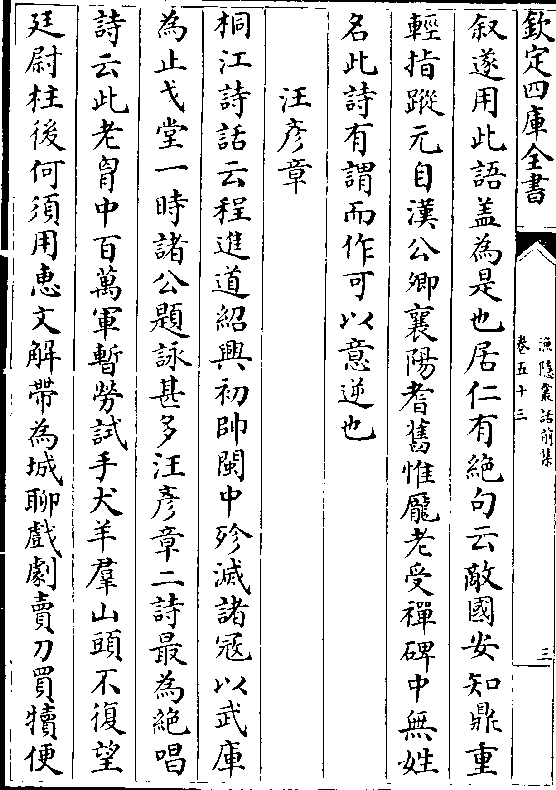 欽定四庫全書
漁隱叢話前集
卷五十三
三
叙遂用此語蓋為是也居仁有絶句云敵國安知鼎重
輕指蹤元自漢公卿襄陽耆舊惟龎老受禪碑中無姓
名此詩有謂而作可以意逆也
汪彦章
桐江詩話云程進道紹興初帥閩中殄滅諸冦以武庫
為止戈堂一時諸公題詠甚多汪彦章二詩最為絶唱
詩云此老胷中百萬軍暫勞試手犬羊羣山頭不復望
廷尉柱後何須用惠文解帶為城聊戲劇賣刀買犢便